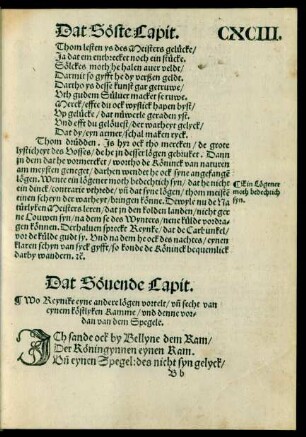 Dat Söste Capit. CXCIII.
Thom lesten ys des Meisters gelücke/
Ja dat em enthrecket noch ein stücke.
Sölckes moth he halen auer velde/
Darmit so gyfft he dy vorßen gelde.
Dartho ys desse kunst gar getruwe/
Vth gudem Süluer maket se ruwe.
Merck/ effte du ock wyßlick hapen byst/
Vp gelücke/ dat nüwerle geraden yst.
Vnd efft du gelöuest/ der warheyt gelyck/
Dat dy/ eyn armer/ schal maken ryck.
Thom drüdden. Js hyr ock tho mercken/ de grote
lystichheyt des Vosses/ de he in desser lögen gebruket. Dann
in dem dat he vormercket/ wortho de Köninck van naturen
am meysten geneget/ darhen wendet he ock syne angefangē
lögen. Wente ein lögener moth bedechtich syn/ dat he nicht
ein dinck/ contrarie vthrede/ vñ dat syne lögen/ thom meistē
einen scheyn der warheyt/ bringen könne. Dewyle nu de Na
türlyken Meisters leren/ dat in den kolden landen/ nicht ger
ne Louwen syn/ na dem se des Wynters/ neue külde vordra
gen können. Derhaluen spreckt Reynke/ dat de Carbunkel/
vor de külde gudt sy. Vnd na dem he ock des nachtes/ eynen
klaren schyn van syck gyfft/ so konde de Köninck bequemlick
darby wandern. ꝛc.
¶ Ein Lögener
moth bedechtich
syn.
Dat Söuende Capit.
¶ Wo Reynike eyne andere lögen vortelt/ vñ secht van
eynem köstlyken Kamme/ vnd denne vor-
dan van dem Spegele.
JCh sande ock by Bellyne dem Ram/
Der Köningynnen eynen Kam.
Vñ eynen Spegel: des nicht syn gelyck/
B b